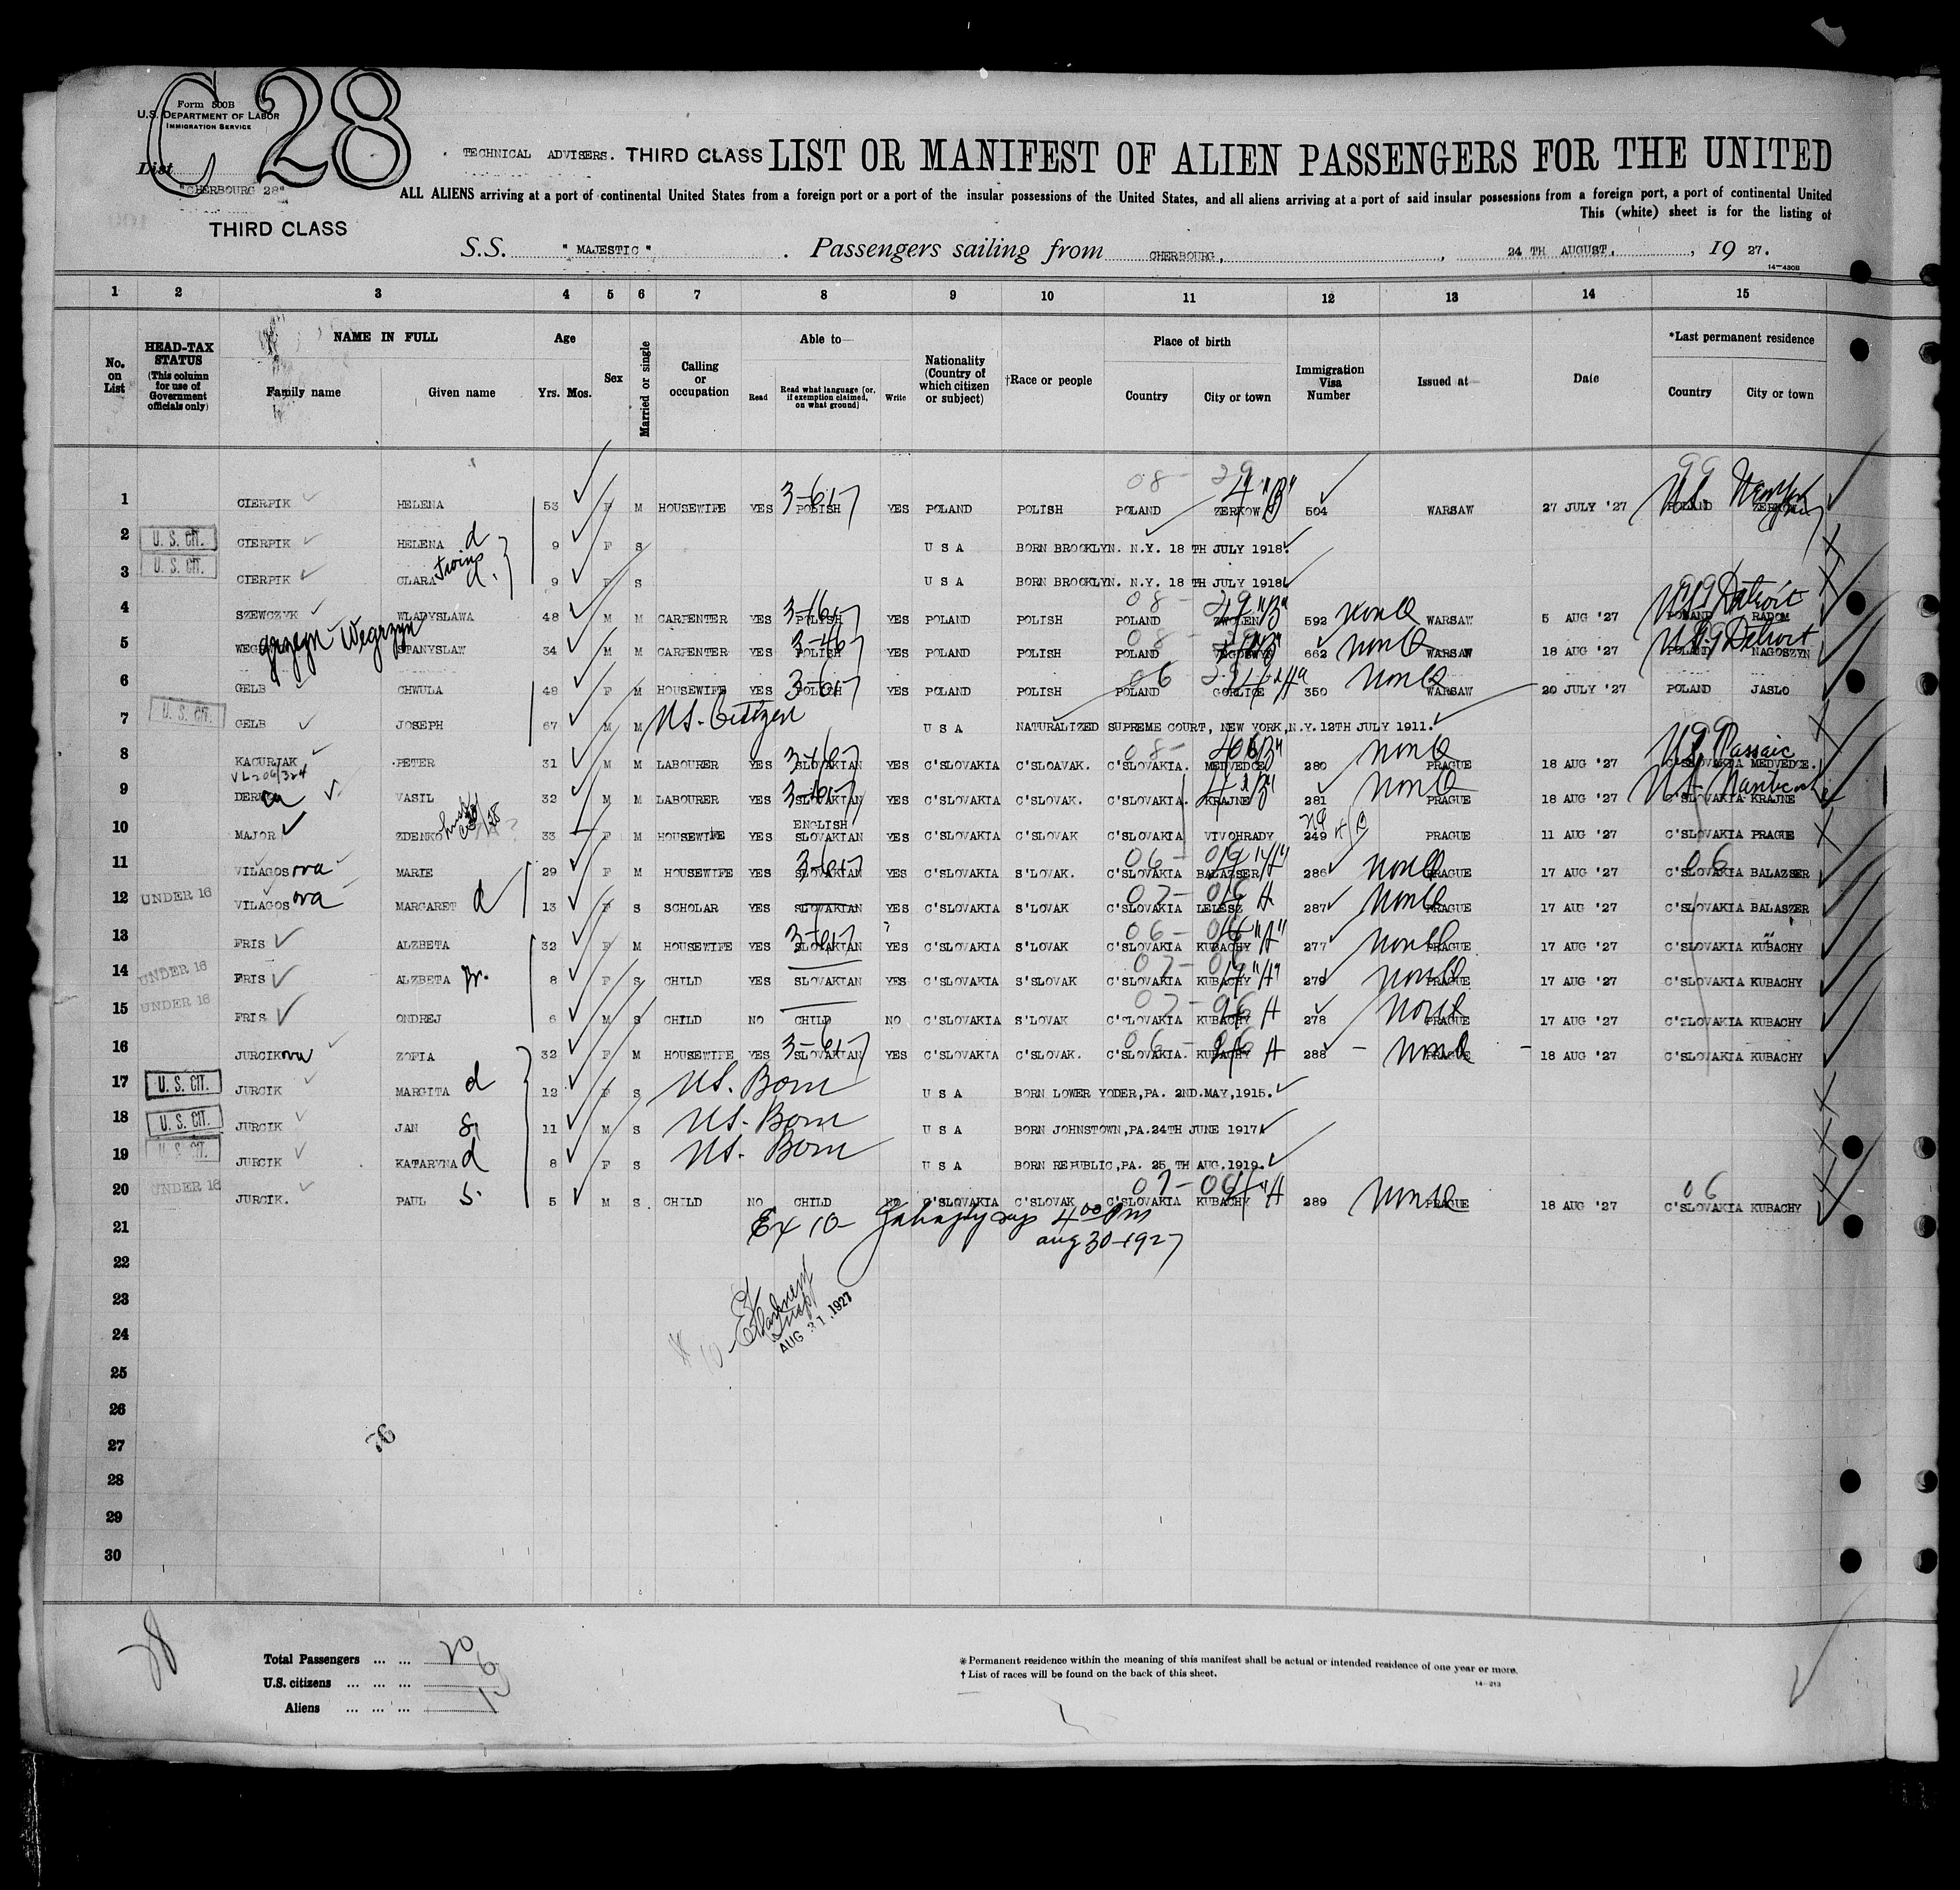 C 28
Form 500B
U.S. DEPARTMENT OF LABOR
IMMIGRATION SERVICE
List
"CHERBOURG 28"
THIRD CLASS
TECHNICAL ADVISERS. THIRD CLASS LIST OR MANIFEST OF ALIEN PASSENGERS FOR THE UNITED
ALL ALIENS arriving at a port of continental United States from a foreign port or a port of the insular possessions of the United States, and all aliens arriving at a port of said insular possessions from a foreign port, a port of continental United
This (white) sheet is for the listing of
S.S. "MAJESTIC". Passengers sailing from CHERBOURG, 24 TH AUGUST, 1927.
14-430B
1 2 3 4 5 6 7 8 9 10 11 12 13 14 15
No. on List
HEAD-TAX STATUS (This column for use of Government officials only)
NAME IN FULL
Family name Given name
Age
Yrs. Mos.
Sex
Married or single
Calling or occupation
Able to—
Read Read what language [or, if exemption claimed, on what ground] Write
Nationality (Country of which citizen or subject)
†Race or people
Place of birth
Country City or town
Immigration Visa Number
Issued at—
Date
*Last permanent residence
Country City or town
1 CIERPIK HELENA 53 F M HOUSEWIFE YES POLISH YES POLAND POLISH POLAND ZERKOW 504 WARSAW 27 JULY '27 POLAND ZERKOW
2 U. S. CIT. CIERPIK HELENA d 9 F S U S A BORN BROOKLYN. N.Y. 18 TH JULY 1918.
3 U. S. CIT. CIERPIK CLARA Twins d. 9 F S U S A BORN BROOKLYN. N.Y. 18 TH JULY 1918
4 SZEWCZYK WLADYSLAWA 48 M M CARPENTER YES POLISH YES POLAND POLISH POLAND 592 NonQ WARSAW 5 AUG '27 POLAND RADOM U.S. Detroit
5 Wegrzyn STANYSLAW 34 M M CARPENTER YES POLISH YES POLAND POLISH POLAND 662 NonQ WARSAW 18 AUG '27 POLAND NAGOSZYN U.S. Detroit
6 GELB CHWULA 48 F M HOUSEWIFE YES POLISH YES POLAND POLISH POLAND GORLICE 350 NonQ WARSAW 20 JULY '27 POLAND JASLO
7 U. S. CIT. GELB JOSEPH 67 M M U.S. Citizen U S A NATURALIZED SUPREME COURT, NEW YORK, N.Y. 12TH JULY 1911.
8 KACURJAK PETER 31 M M LABOURER YES SLOVAKIAN YES C'SLOVAKIA C'SLOAVAK. C'SLOVAKIA. MEDVEDCE 280 NonQ PRAGUE 18 AUG '27 C'SLOVAKIA MEDVEDCE. U.S. Passaic
9 VASIL 32 M M LABOURER YES SLOVAKIAN YES C'SLOVAKIA C'SLOVAK. C'SLOVAKIA. KRAJNE 281 NonQ PRAGUE 18 AUG '27 C'SLOVAKIA KRAJNE
10 MAJOR ZDENKO 33 F M HOUSEWIFE YES ENGLISH SLOVAKIAN YES C'SLOVAKIA C'SLOVAK C'SLOVAKIA VIVOHRADY 249 PRAGUE 11 AUG '27 C'SLOVAKIA PRAGUE
11 VILAGOSova MARIE 29 F M HOUSEWIFE YES SLOVAKIAN YES C'SLOVAKIA S'LOVAK. C'SLOVAKIA BALAZSER 286 NonQ PRAGUE 17 AUG '27 C'SLOVAKIA BALAZSER
12 UNDER 16 VILAGOSova MARGARET d 13 F S SCHOLAR YES SLOVAKIAN YES C'SLOVAKIA S'LOVAK C'SLOVAKIA LELESZ 287 NonQ PRAGUE 17 AUG '27 C'SLOVAKIA BALASZER
13 FRIS ALZBETA 32 F M HOUSEWIFE YES SLOVAKIAN YES C'SLOVAKIA S'LOVAK C'SLOVAKIA KUBACHY 277 NonQ PRAGUE 17 AUG '27 C'SLOVAKIA KUBACHY
14 UNDER 16 FRIS ALZBETA Jr. 8 F S CHILD YES SLOVAKIAN YES C'SLOVAKIA S'LOVAK C'SLOVAKIA KUBACHY 279 NonQ PRAGUE 17 AUG '27 C'SLOVAKIA KUBACHY
15 UNDER 16 FRIS ONDREJ 6 M S CHILD NO CHILD NO C'SLOVAKIA S'LOVAK C'SLOVAKIA KUBACHY 278 NonQ PRAGUE 17 AUG '27 C'SLOVAKIA KUBACHY
16 JURCIKova ZOFIA 32 F M HOUSEWIFE YES SLOVAKIAN YES C'SLOVAKIA C'SLOVAK. C'SLOVAKIA. KUBACHY 288 NonQ PRAGUE 18 AUG '27 C'SLOVAKIA KUBACHY
17 U. S. CIT. JURCIK MARGITA d 12 F S U.S. Born U S A BORN LOWER YODER,PA. 2ND.MAY,1915.
18 U. S. CIT. JURCIK JAN S 11 M S U.S. Born U S A BORN JOHNSTOWN,PA.24TH JUNE 1917
19 U. S. CIT. JURCIK KATARYNA d 8 F S U.S. Born U S A BORN REPUBLIC,PA. 25 TH AUG.1919.
20 UNDER 16 JURCIK. PAUL S. 5 M S CHILD NO CHILD NO C'SLOVAKIA C'SLOVAK C'SLOVAKIA KUBACHY 289 NonQ PRAGUE 18 AUG '27 C'SLOVAKIA KUBACHY
21 Ex 10 4 00 Pm
Aug 30-1927
22
23
24 AUG 31 1927
25
26
27 76
28
29
30
28
Total Passengers ... ... 20
U.S. citizens ... ... ... 6
Aliens ... ... ...
* Permanent residence within the meaning of this manifest shall be actual or intended residence of one year or more.
† List of races will be found on the back of this sheet.
14-213